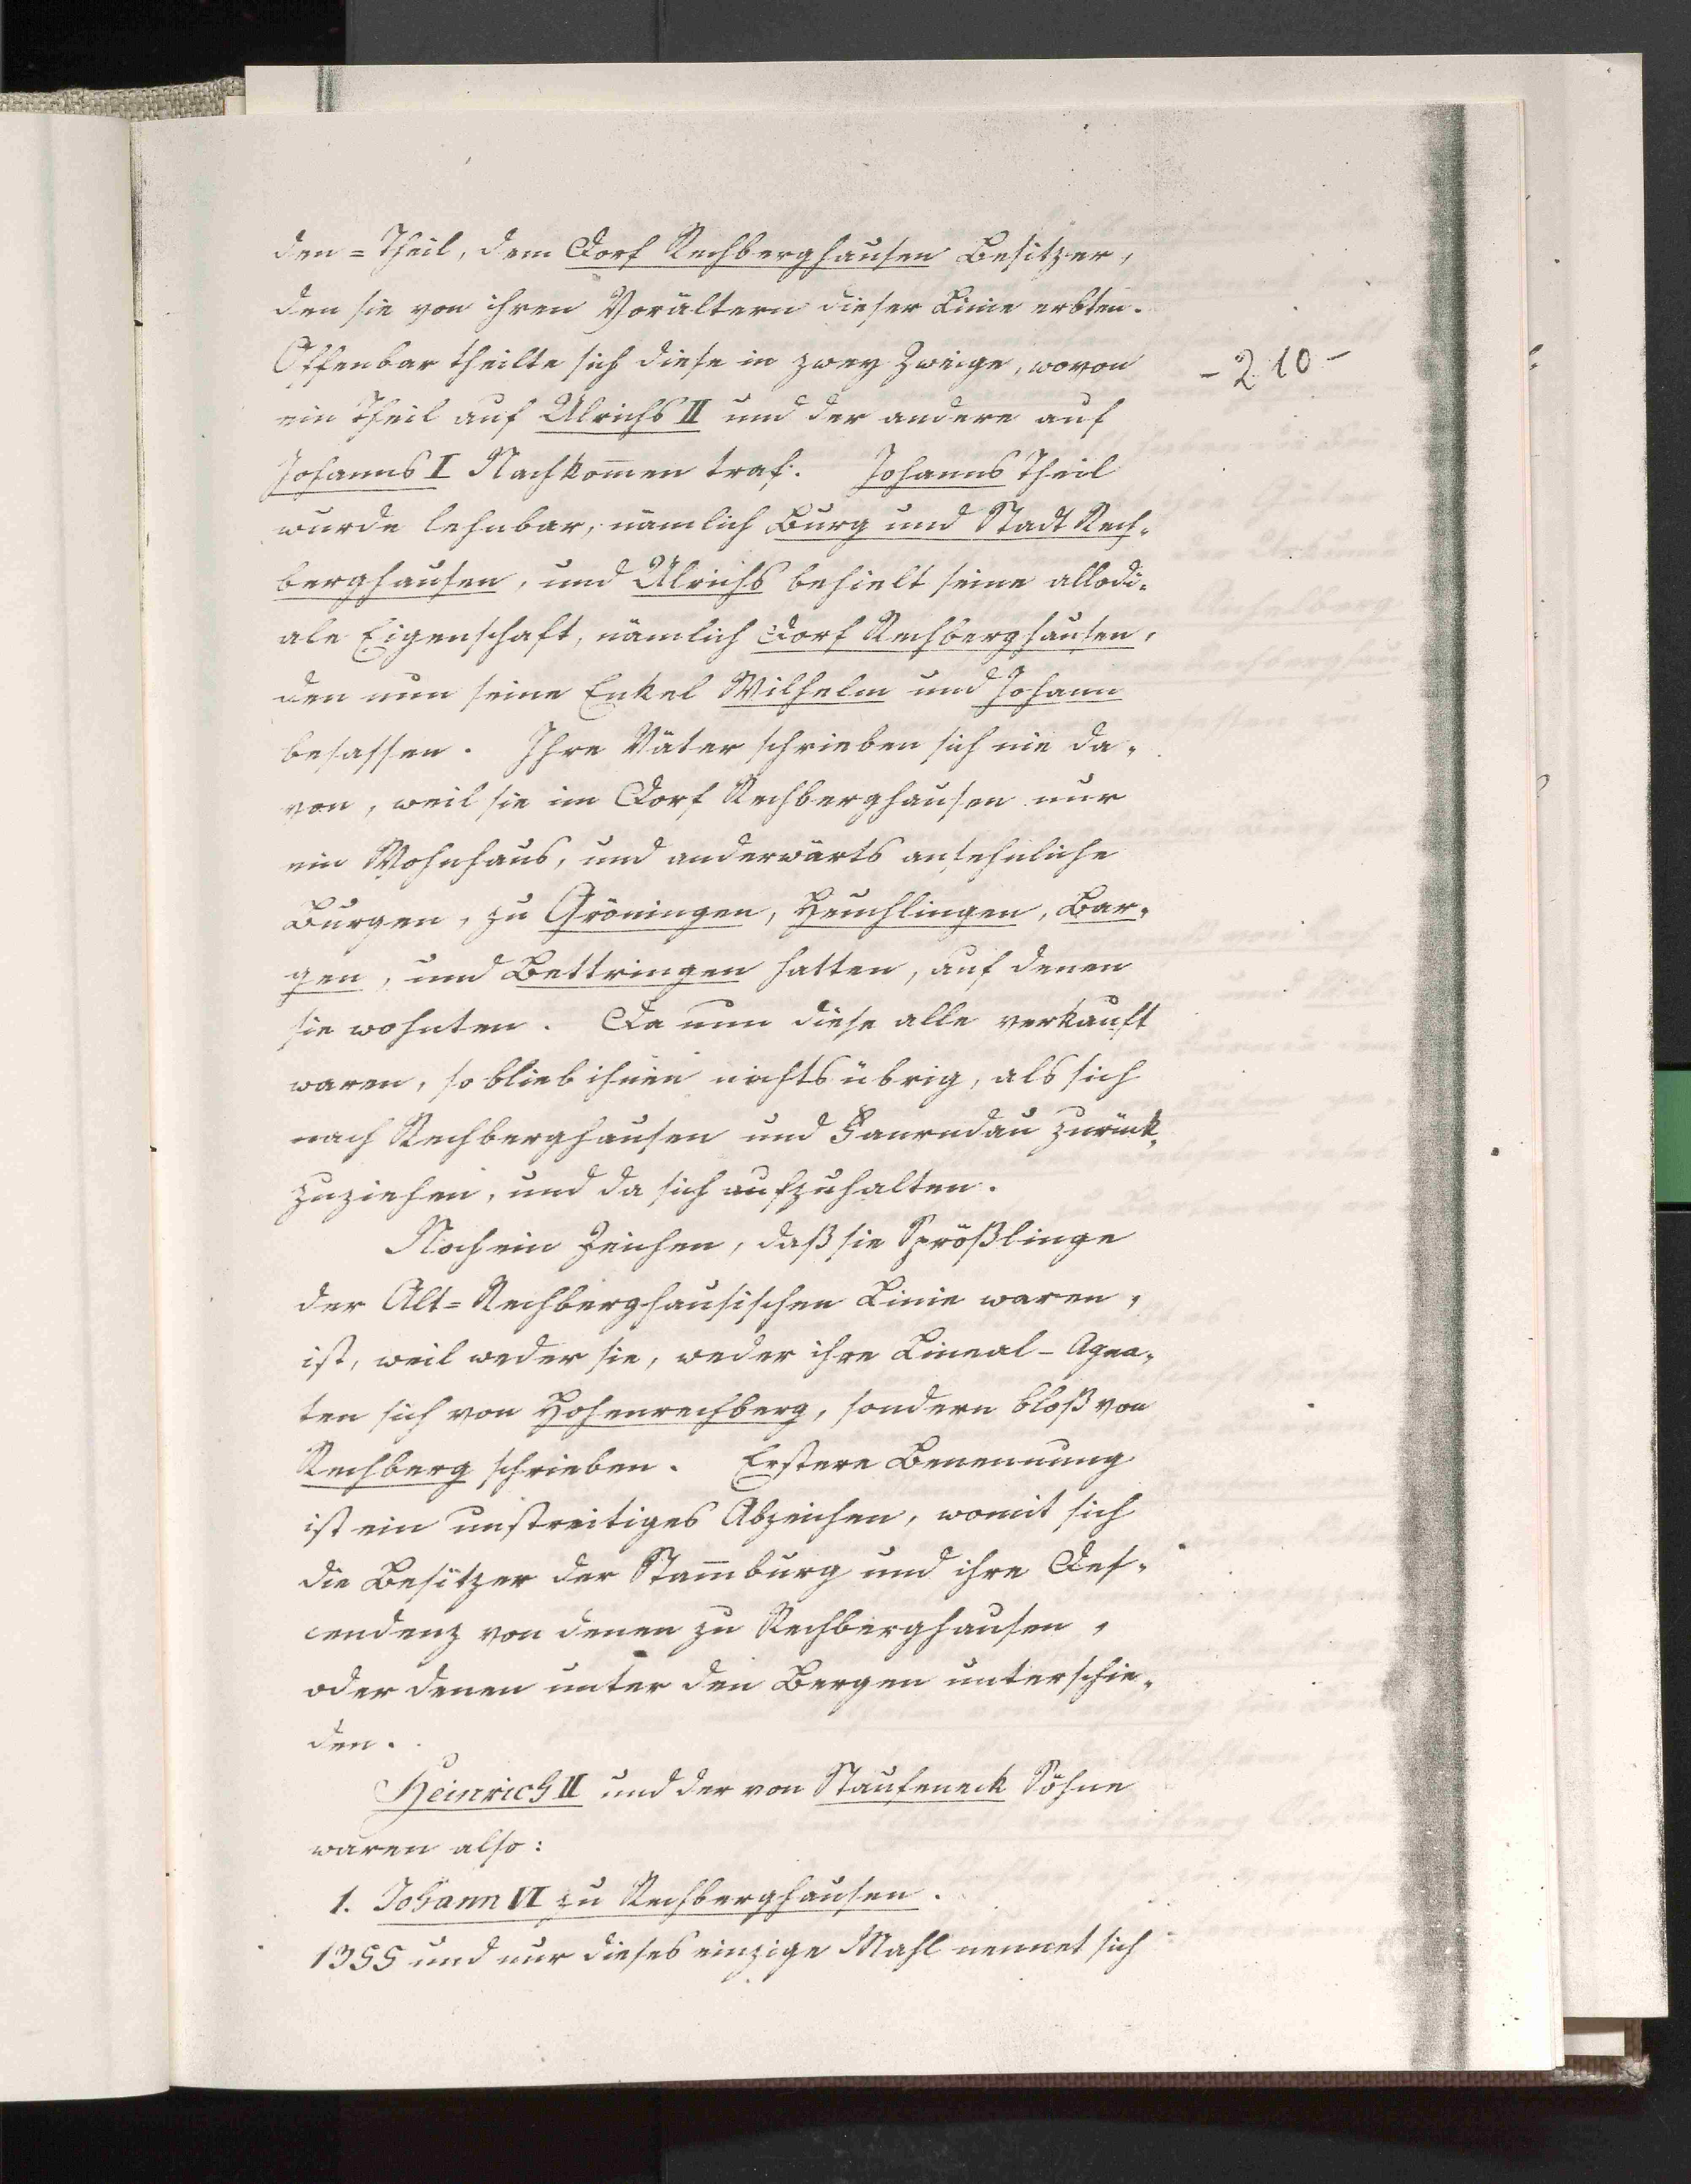 den=Theil, dem Dorf Rechberghausen Besitzer,
den sie von ihren Vorältern dieser Linie erbten.
Offenbar theilte sich diese in zwey Zweige, wovon
-210-
ein Theil auf Ulrichs II und der andere auf
Johanns I Nachkom̄en traf. Johanns Theil
wurde lehnbar, nämlich Burg und Stadt Rech-
berghausen, und Ulrichs behielt seine allodi-
ale Eigenschaft, nämlich Dorf Rechberghausen,
den nun seine Enkel Wilhelm und Johann
besassen. Ihre Väter schrieben sich nie da-
von, weil sie im Dorf Rechberghausen nur
ein Wohnhaus, und anderwärts ansehnliche
Burgen, zu Gröningen, Heuchlingen, Bar-
gen, und Bettringen hatten, auf denen
sie wohnten. Da nun diese alle verkauft
waren, so blieb ihnen nichts übrig, als sich
nach Rechberghausen und Faurndau zurük-
zuziehen, und da sich aufzuhalten.
Noch ein Zeichen, daß sie Sprößlinge
der Alt=Rechberghausischen Linie waren,
ist, weil weder sie, weder ihre Lineal-Agna-
ten sich von Hohenrechberg, sondern bloß von
Rechberg schrieben. Erstere Benennung
ist ein unstreitiges Abzeichen, womit sich
die Besitzer der Stam̄burg und ihre Des-
cendenz von denen zu Rechberghausen,
oder denen unter den Bergen unterschie-
den.
Heinrich II und der von Staufeneck Söhne
waren also:
1. Johann VI zu Rechberghausen.
1355 und nur dieses einzige Mahl nennet sich